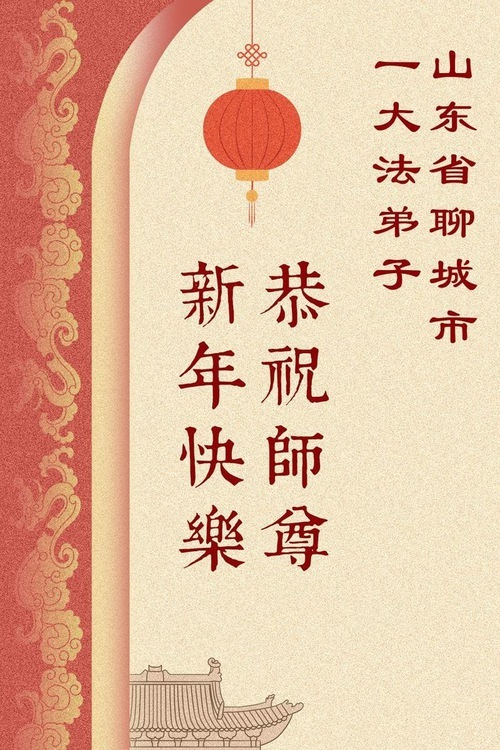 山东省聊城市
一大法弟子
恭祝師尊
新年快樂